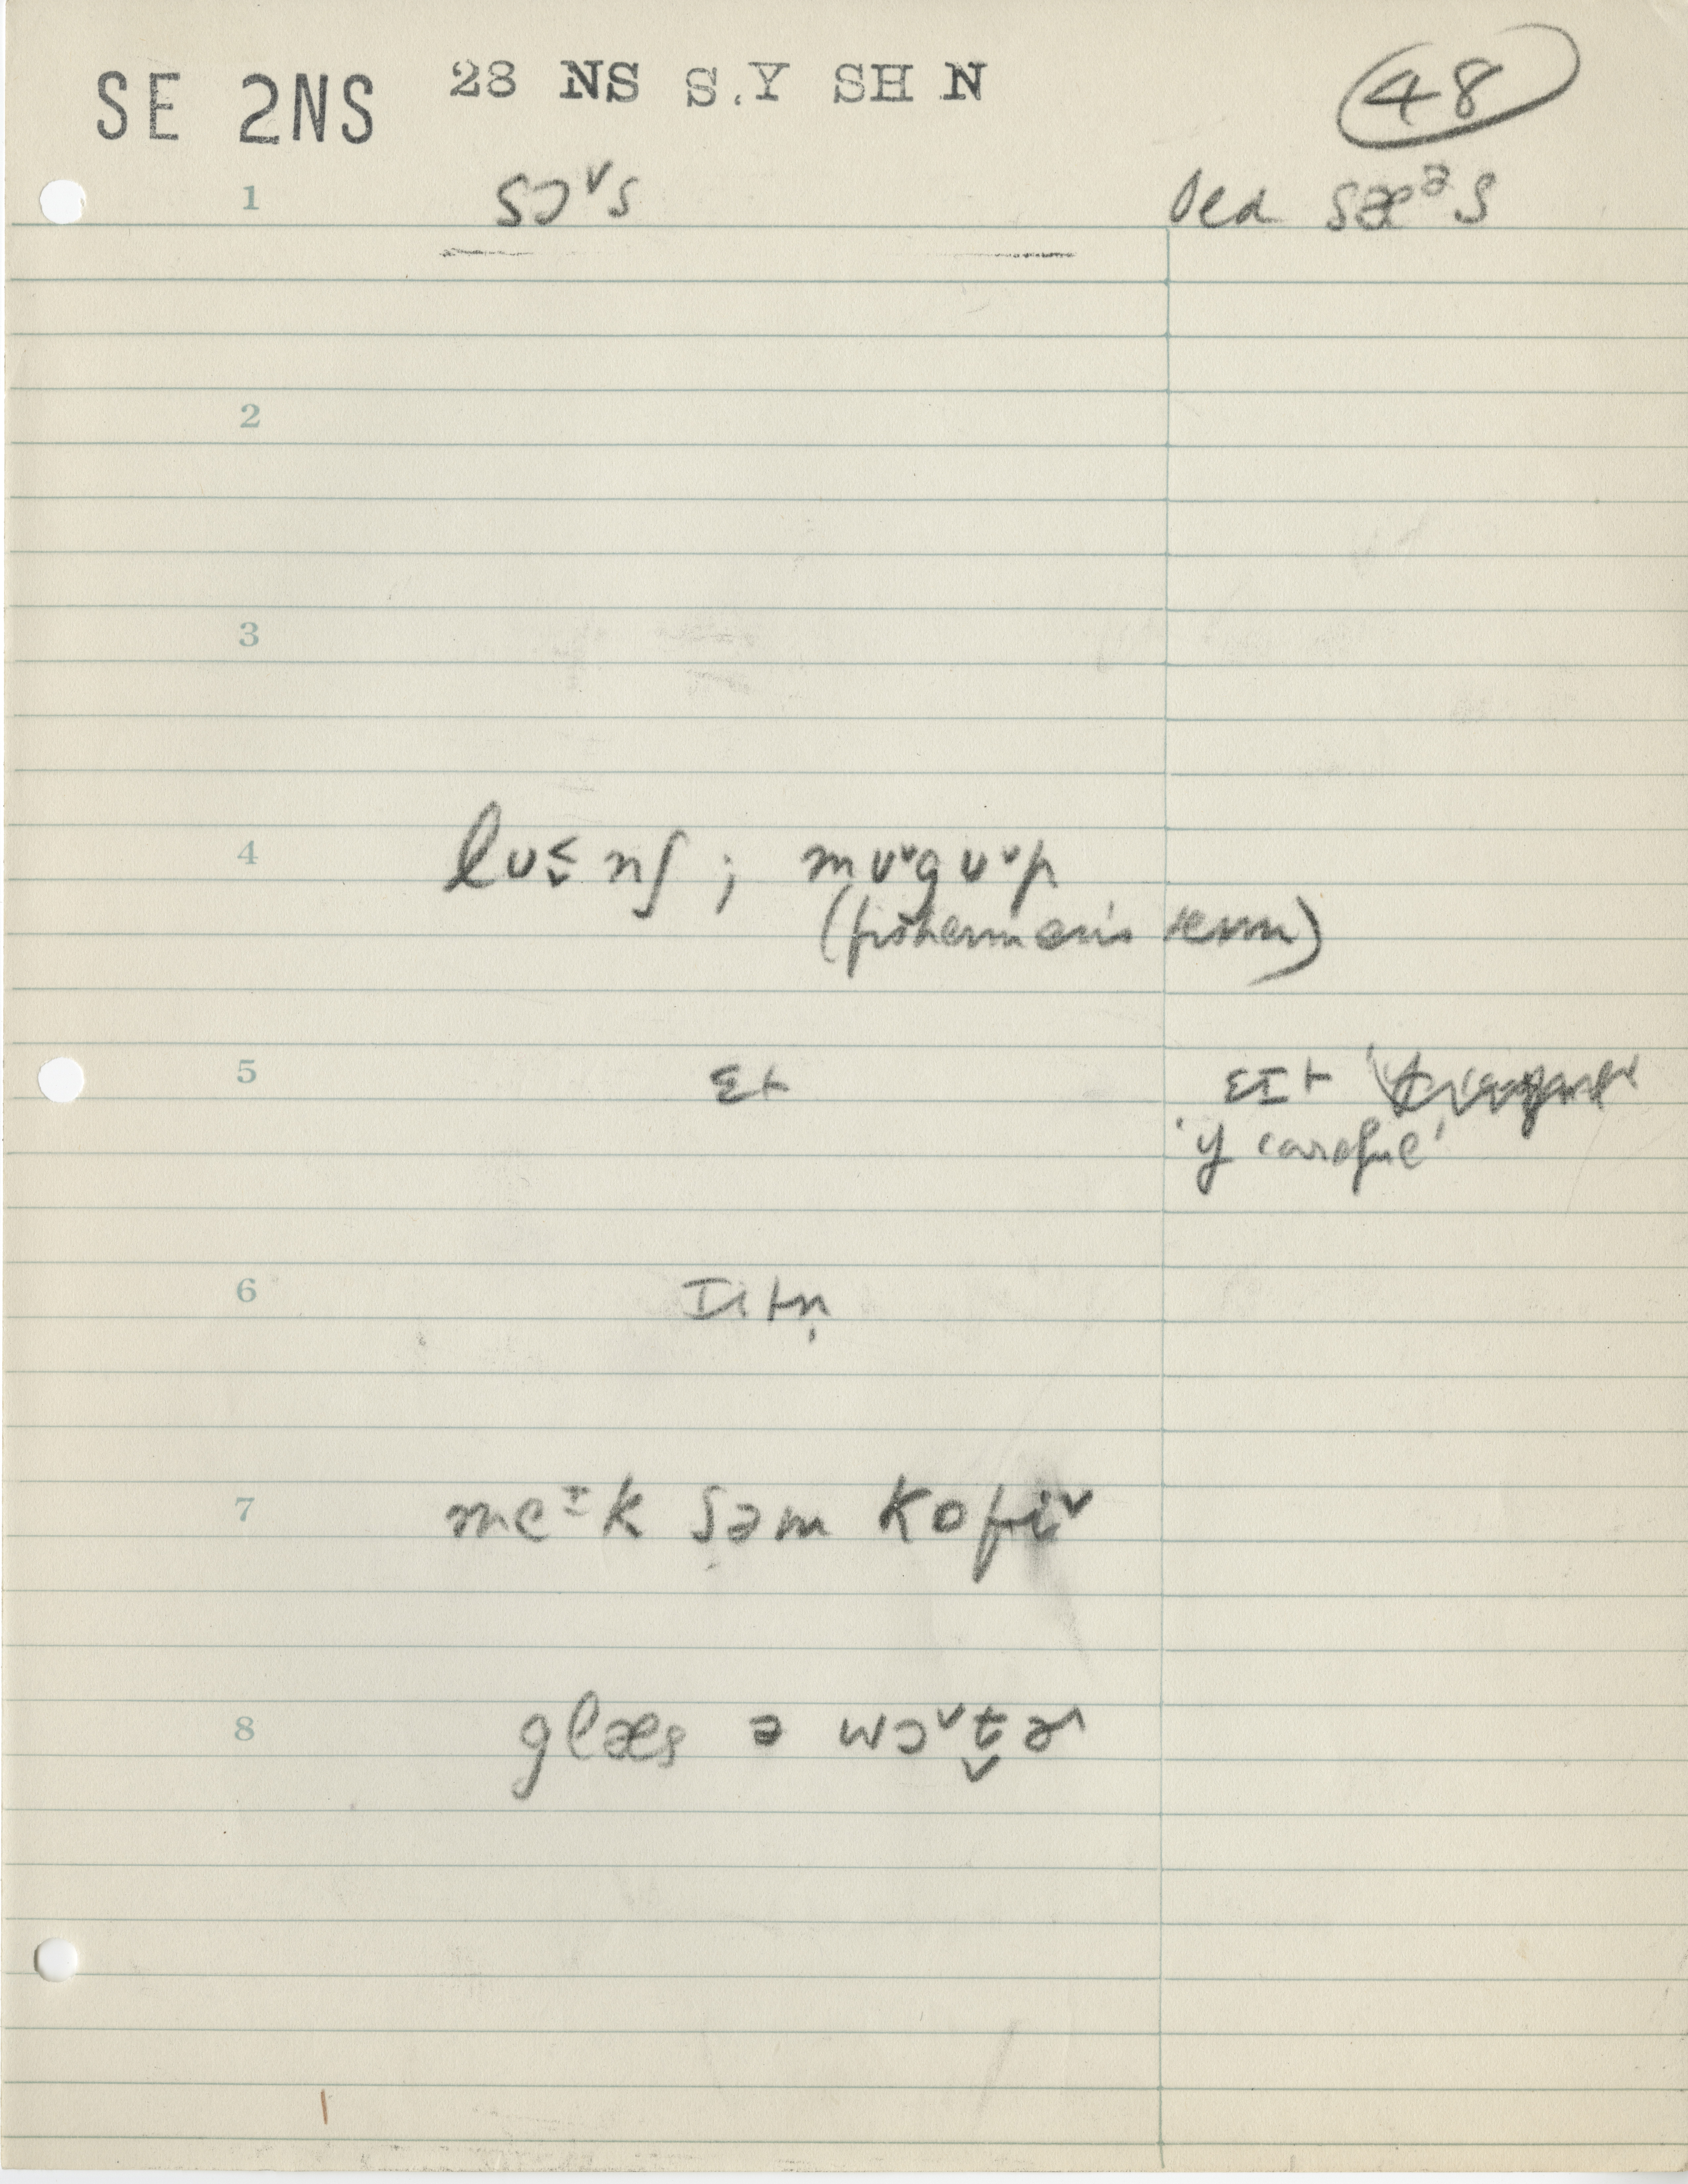 SE 2NS 28 NS S.Y SH N 48
1 sɔᵛs old sæᵊs
2
3
4 lʊ≤̬nʃ ; mʊᵛgʊᵛp
(fisherman's term)
5 ɛt ɛɪt
'if careful'
6 ɪitn̩
7 meɪk səm kofiᵛ
8 glæs ə wɔᵛt̬ɚ